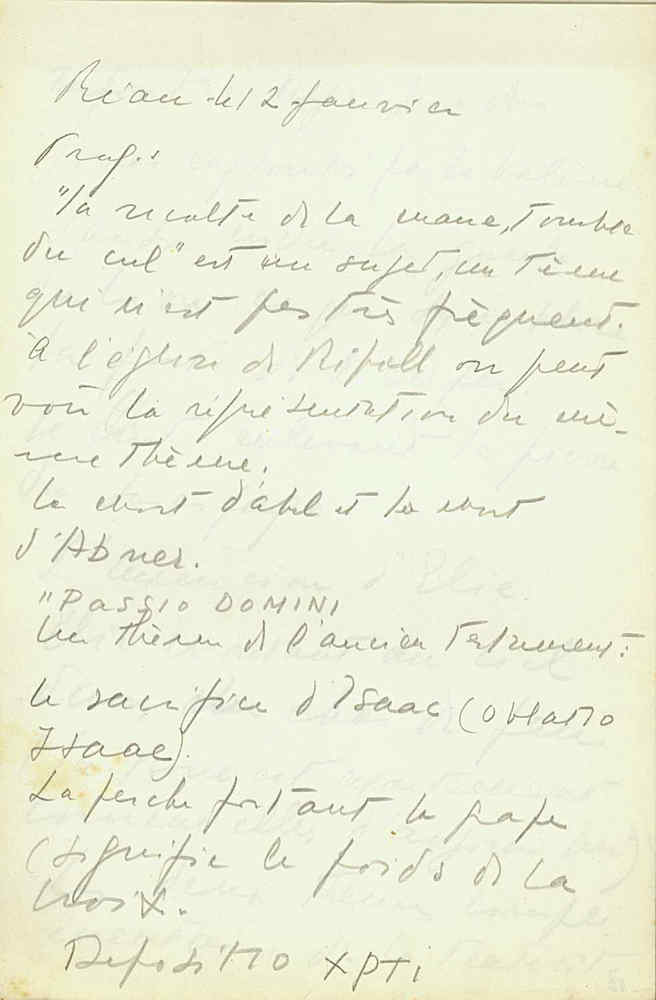 le 12 Janvier
Frag.:
"la récolte de la mane, tombée
du ciel" est un sujet, un tème
qui n'est pas très fréquent.
À l'église de Ripoll on peut
voir la représentation du mê-
me thème.
La mort d'abel et la mort
d'Abner.
"PASSIO DOMINI
Un thème de l'ancien Testament:
le sacrifice d'Isaac (Oblatio
Isaac).
La perche portant la grape
(signifie le poids de la
Croix.
Depositio XPTi